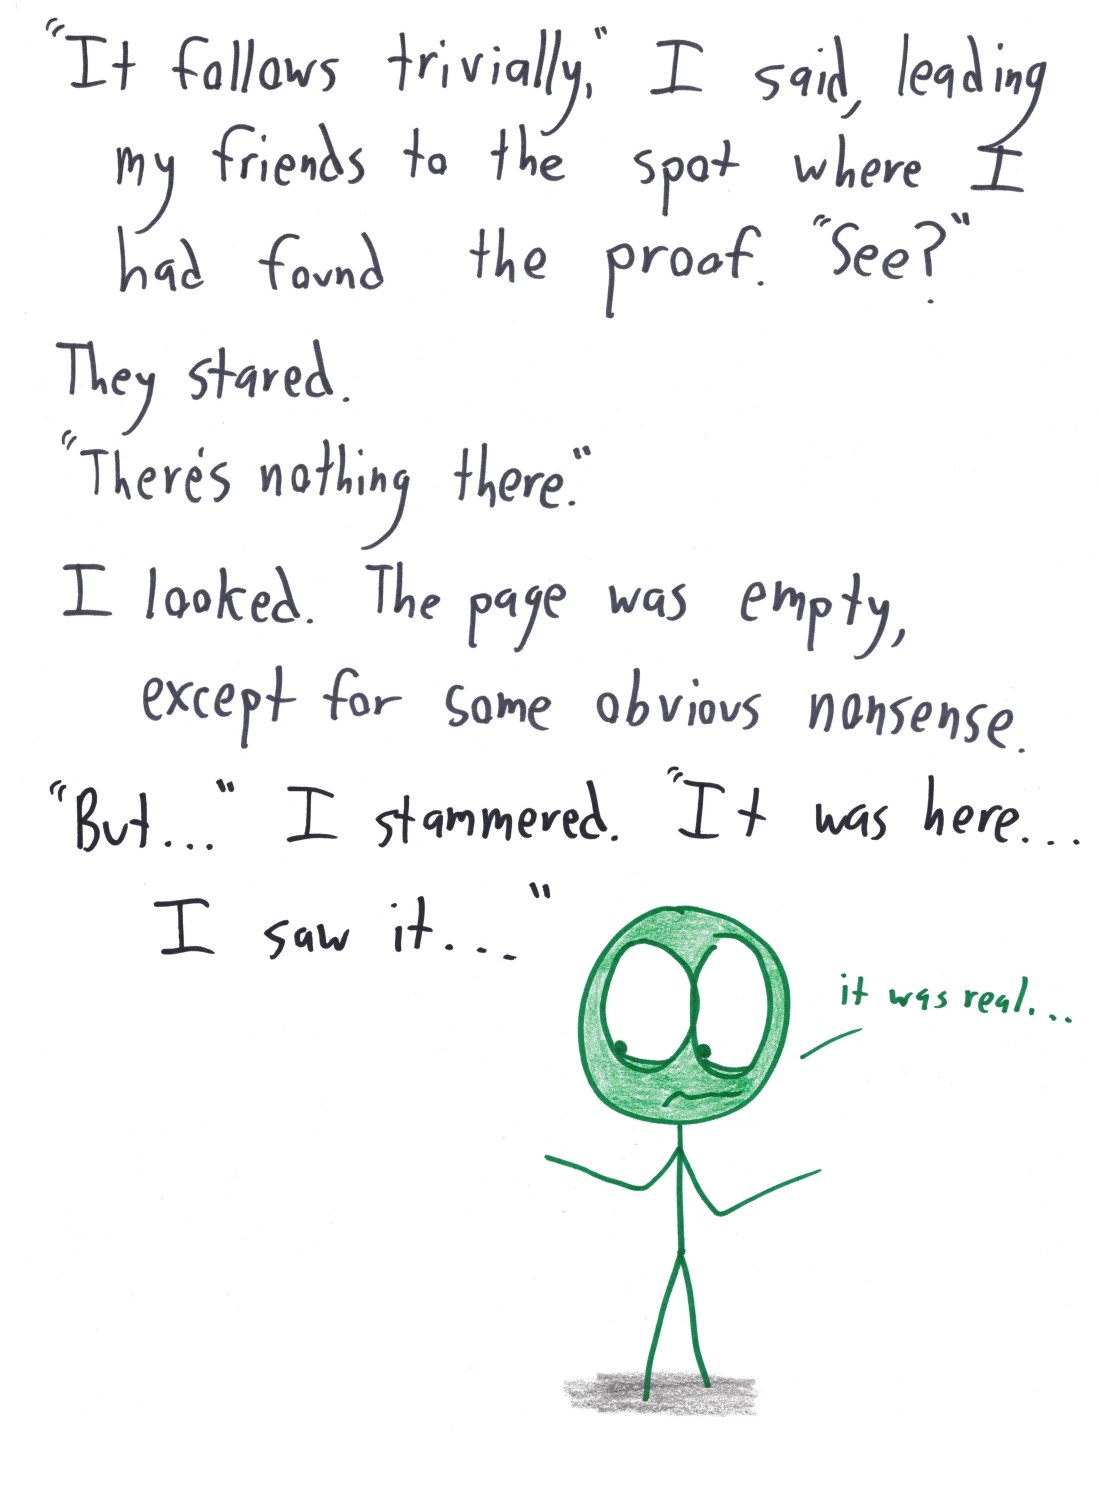 "It follows trivially," I said, leading
my friends to the spot where I
had found the proof. "See?"
They stared.
"There's nothing there."
I looked. The page was empty,
except for some obvious nonsense.
"But..." I stammered. "It was here...
I saw it..."
it was real...